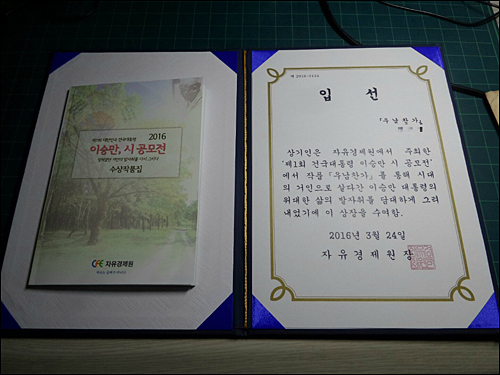 2016
이승만, 시 공모전
수상작품집
CFE 자유경제원
입 선
『우남찬가』
상기인은 자유경제원에서 주최한
'제1회 건국대통령 이승만 시 공모전'
에서 작품 『우남찬가』를 통해 시대
의 거인으로 살다간 이승만 대통령의
위대한 삶의 발자취를 담대하게 그려
내었기에 이 상장을 수여함.
2016년 3월 24일
자유경제원장